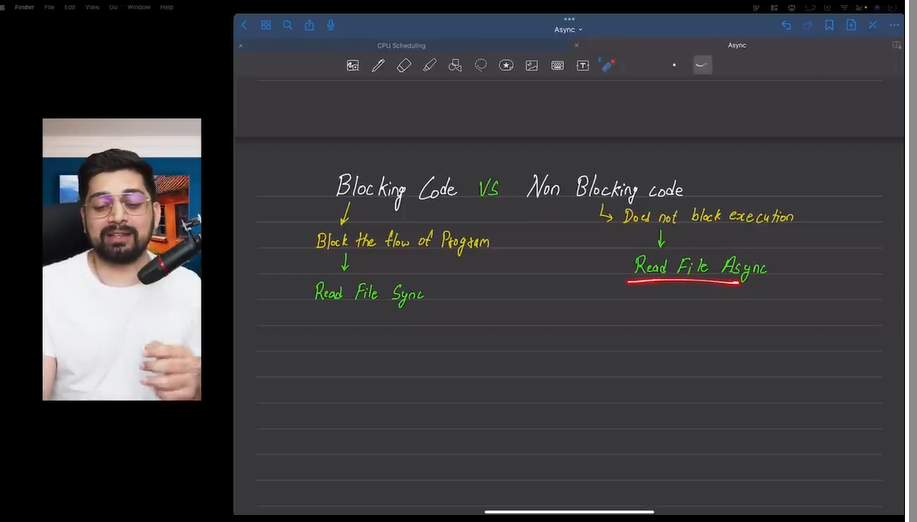 Finder File Edit View Go Window Help
Async
CPU Scheduling
Async
Blocking Code VS Non Blocking code
Block the flow of Program
Does not block execution
Read File Sync
Read File Async